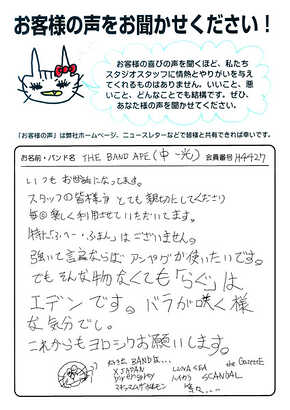 お客様の声をお聞かせください！
お客様の喜びの声を聞くほど、私たち
スタジオスタッフに情熱とやりがいを与え
てくれるものはありません。いいこと、悪
いこと、どんなことでも結構です。ぜひ、
あなた様の声を聞かせてください。
「お客様の声」は弊社ホームページ、ニュースレターなどで皆様と共有できれば幸いです。
お名前・バンド名 THE BAND APE(中一光) 会員番号 H4427
いつもお世話になってます。
スタッフの皆様方とても親切にしてくださり
毎回楽しく利用させていただいてます。
特に「ふ〜ふまん」はございません。
強いて言えならば アンプが使いたいです。
でもそんな物なくても「らぐ」は
エデンです。バラが咲く様
な気分でし。
これからもヨロシクお願いします。
好きなBANDは…
X JAPAN
LUNA SEA
the GazettE
マキシマムザホルモン
ハイカラ
SCANDAL
等々…